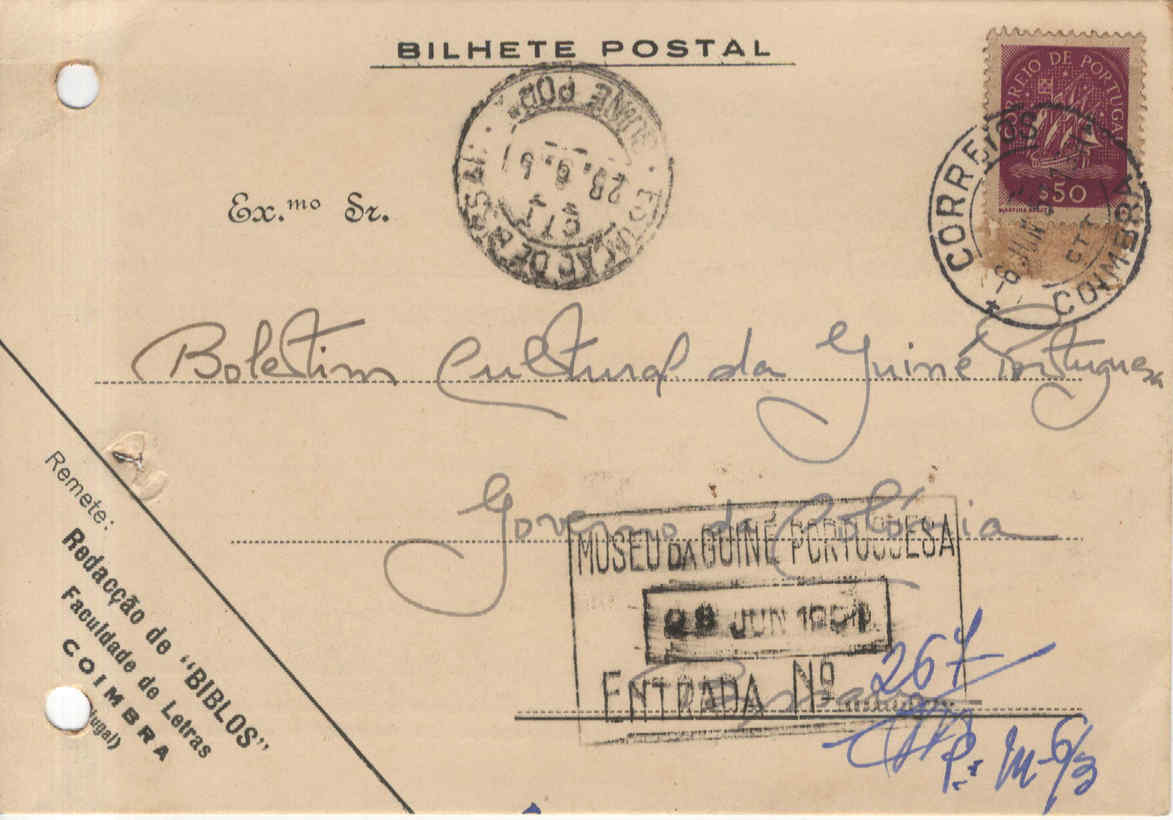 BILHETE POSTAL
CORREIO DE PORTUGAL
$50
CORREIOS
-6 JUN
CTT
COIMBRA
GUINÉ PORT.
28.6.51
CTT
Ex.mo Sr.
Boletim Cultural da Guiné Portuguesa
Governo da Colónia
MUSEU DA GUINÉ PORTUGUESA
28 JUN 1951
ENTRADA Nº 267
P. M-6/3
Remete:
Redacção de "BIBLOS"
Faculdade de Letras
COIMBRA